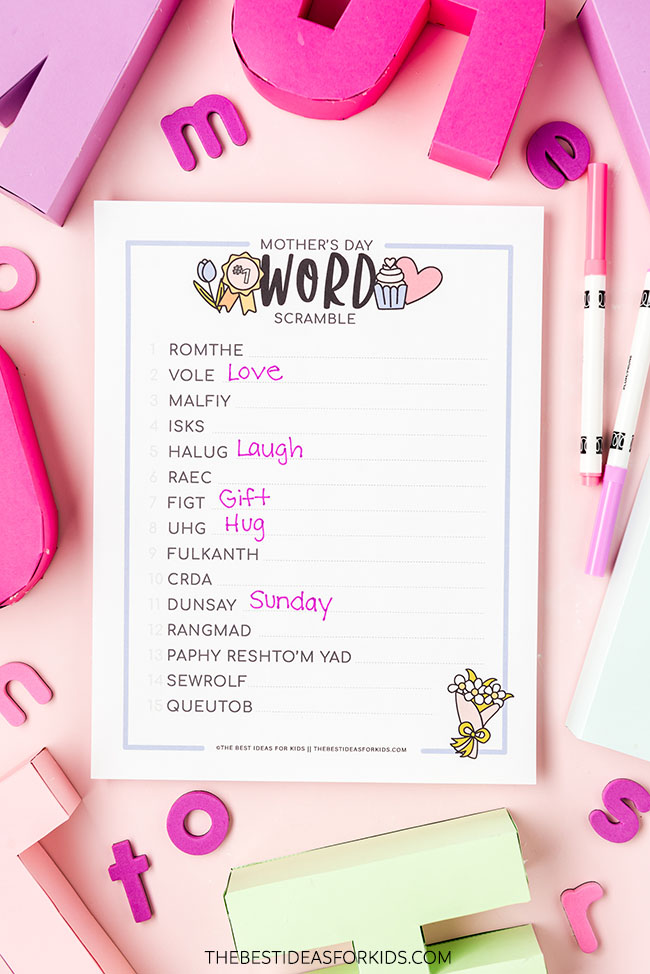 m
e
MOTHER'S DAY
#1
WORD
SCRAMBLE
1 ROMTHE
2 VOLE Love
3 MALFIY
4 ISKS
5 HALUG Laugh
6 RAEC
7 FIGT Gift
8 UHG Hug
9 FULKANTH
10 CRDA
11 DUNSAY Sunday
12 RANGMAD
13 PAPHY RESHTO'M YAD
14 SEWROLF
15 QUEUTOB
©THE BEST IDEAS FOR KIDS || THEBESTIDEASFORKIDS.COM
o
n
o
t
s
r
THEBESTIDEASFORKIDS.COM